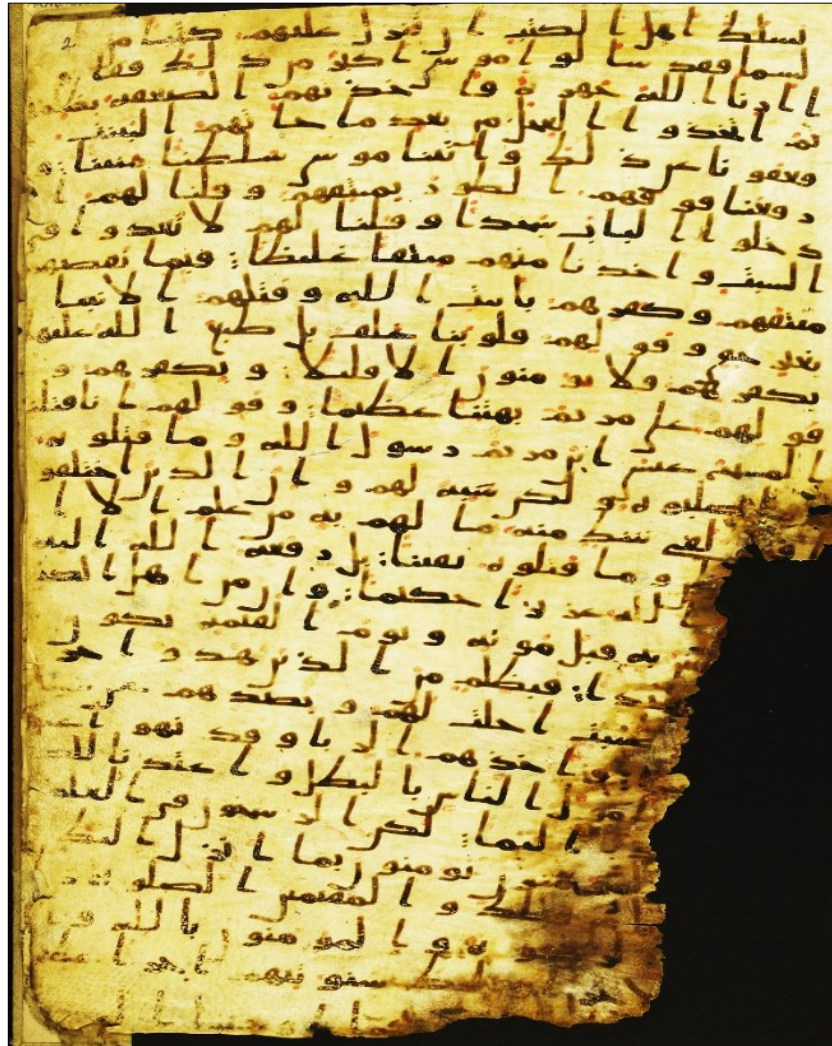 يسلك اهل الكتب ان تنزل عليهم كتبا من
السما فقد سالوا موسى اكبر من ذلك فقا
لوا ارنا الله جهرة فاخذتهم الصعقة بظلمهم
ثم اتخذوا العجل من بعد ما جاتهم البينت
فعفونا عن ذلك واتينا موسى سلطنا مبينا و
رفعنا فوقهم الطور بميثقهم وقلنا لهم ا
دخلوا الباب سجدا وقلنا لهم لا تعدوا في
السبت واخذنا منهم ميثقا غليظا فبما نقضهم
ميثقهم وكفرهم بايت الله وقتلهم الانبيا
بغير حق وقولهم قلوبنا غلف بل طبع الله عليها
بكفرهم فلا يومنون الا قليلا وبكفرهم و
قولهم على مريم بهتنا عظيما وقولهم انا قتلنا
المسيح عيسى ابن مريم رسول الله وما قتلوه
صلبوه ولكن شبه لهم وان الذين اختلفوا
لفي شك منه ما لهم به من علم الا ا
وما قتلوه يقينا بل رفعه الله اليه
الله عزيزا حكيما وان من اهل الكتب
به قبل موته ويوم القيمة يكون
شهيدا فبظلم من الذين هدوا حر
طيبت احلت لهم وبصدهم عن
واخذهم الربوا وقد نهوا عنه
الناس بالبطل واعتدنا
اليما لكن الرسخون في العلم
يومنون بما انزل اليك
قبلك والمقيمين الصلوة
والمومنون بالله
سنوتيهم اجرا